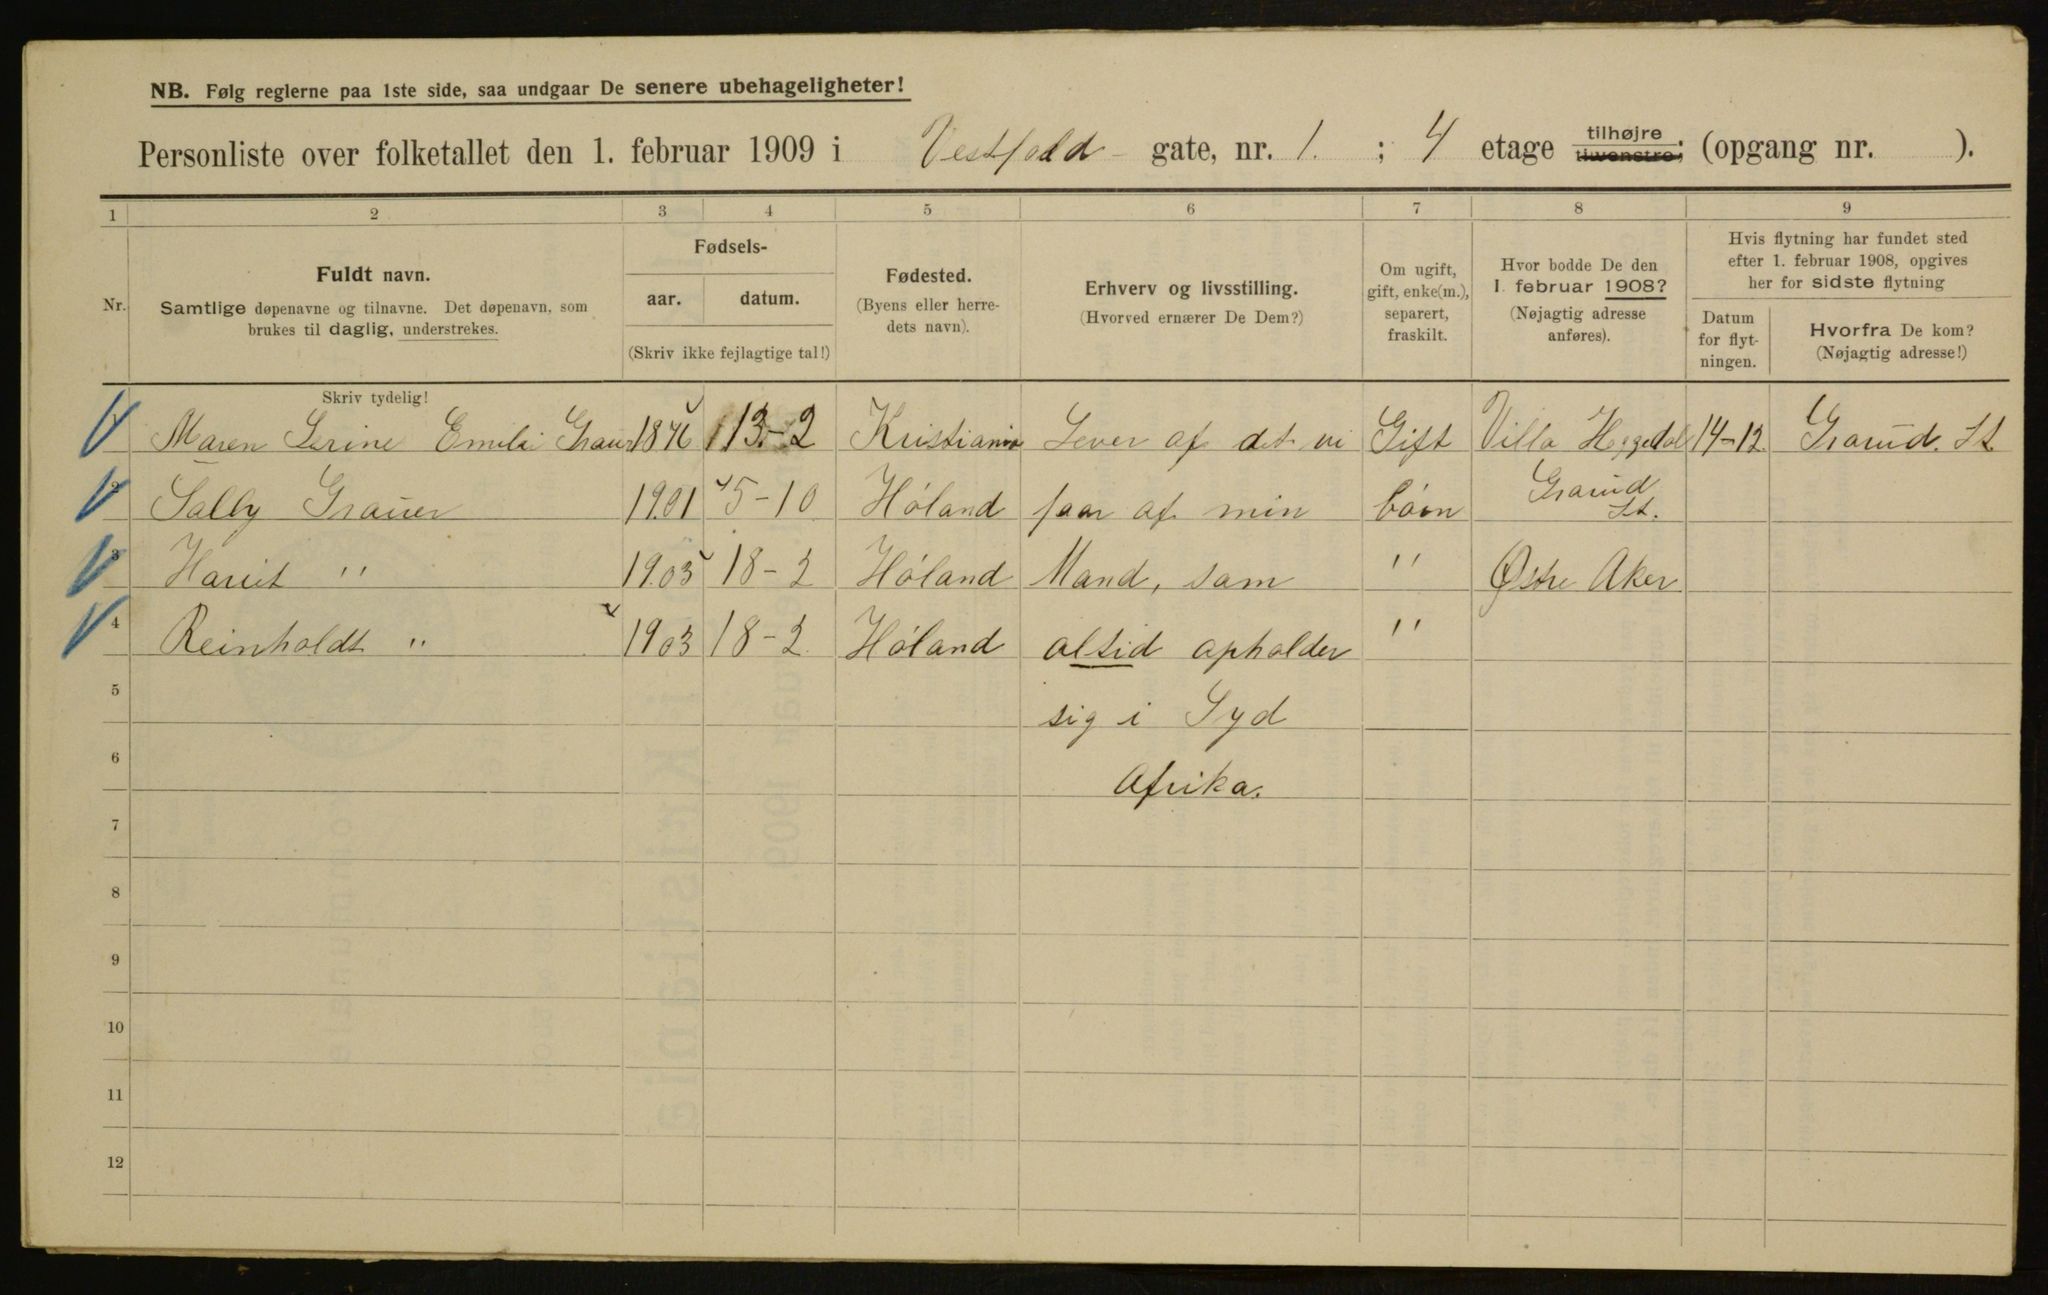 NB. Følg reglerne paa 1ste side, saa undgaar De senere ubehageligheter!
Personliste over folketallet den 1. februar 1909 i Vestfold gate, nr. 1. ; 4 etage tilhøjre tilvenstre; (opgang nr. ).
1 2 3 4 5 6 7 8 9
Nr.
Fuldt navn.
Samtlige døpenavne og tilnavne. Det døpenavn, som
brukes til daglig, understrekes.
Fødsels-
aar. datum.
(Skriv ikke fejlagtige tal!)
Fødested.
(Byens eller herre-
dets navn).
Erhverv og livsstilling.
(Hvorved ernærer De Dem?)
Om ugift,
gift, enke(m.),
separert,
fraskilt.
Hvor bodde De den
1. februar 1908?
(Nøjagtig adresse
anføres).
Hvis flytning har fundet sted
efter 1. februar 1908, opgives
her for sidste flytning
Datum
for flyt-
ningen.
Hvorfra De kom?
(Nøjagtig adresse!)
Skriv tydelig!
1 Maren Serine Emili Grauer 1876 13-2 Kristiania Lever af det vi Gift Villa Heggedal 14-12 Grorud. St.
2 Sally Grauer 1901 5-10 Høland faar af min barn Grorud St.
3 Harriet " 1905 18-2 Høland Mand, som " Østre Aker
4 Reinholdt " 1903 18-2 Høland altid opholder "
5 sig i Syd
6 Afrika.
7
8
9
10
11
12